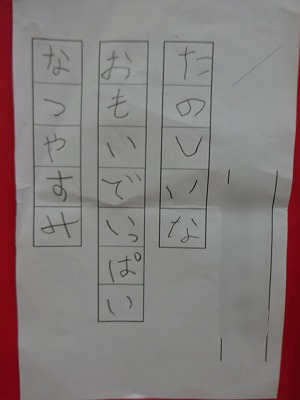 たのしいな
おもいでいっぱい
なつやすみ